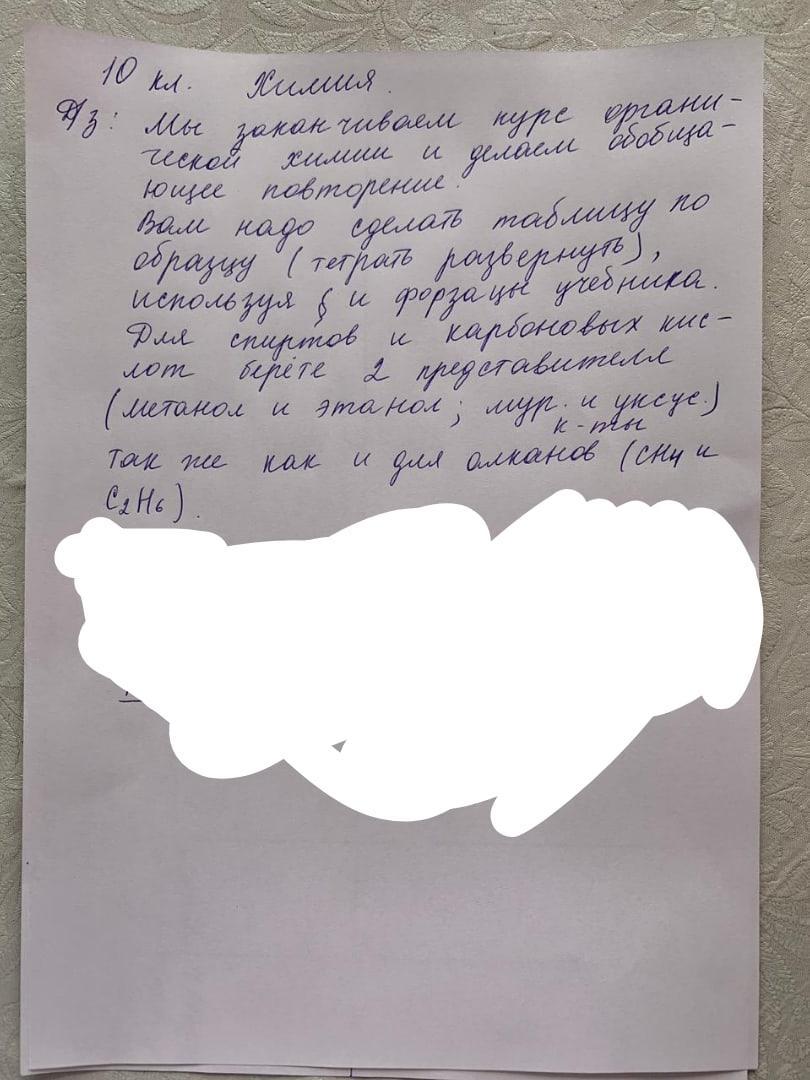 10 кл. Химия.
Д/з: Мы заканчиваем курс органи-
ческой химии и делаем обобща-
ющее повторение.
Вам надо сделать таблицу по
образцу (тетрать развернуть),
используя § и форзацы учебника.
Для спиртов и карбоновых кис-
лот берёте 2 представителя
(метанол и этанол; мур. и уксус.)
к-ты
так же как и для алканов (CH4 и
C2H6).